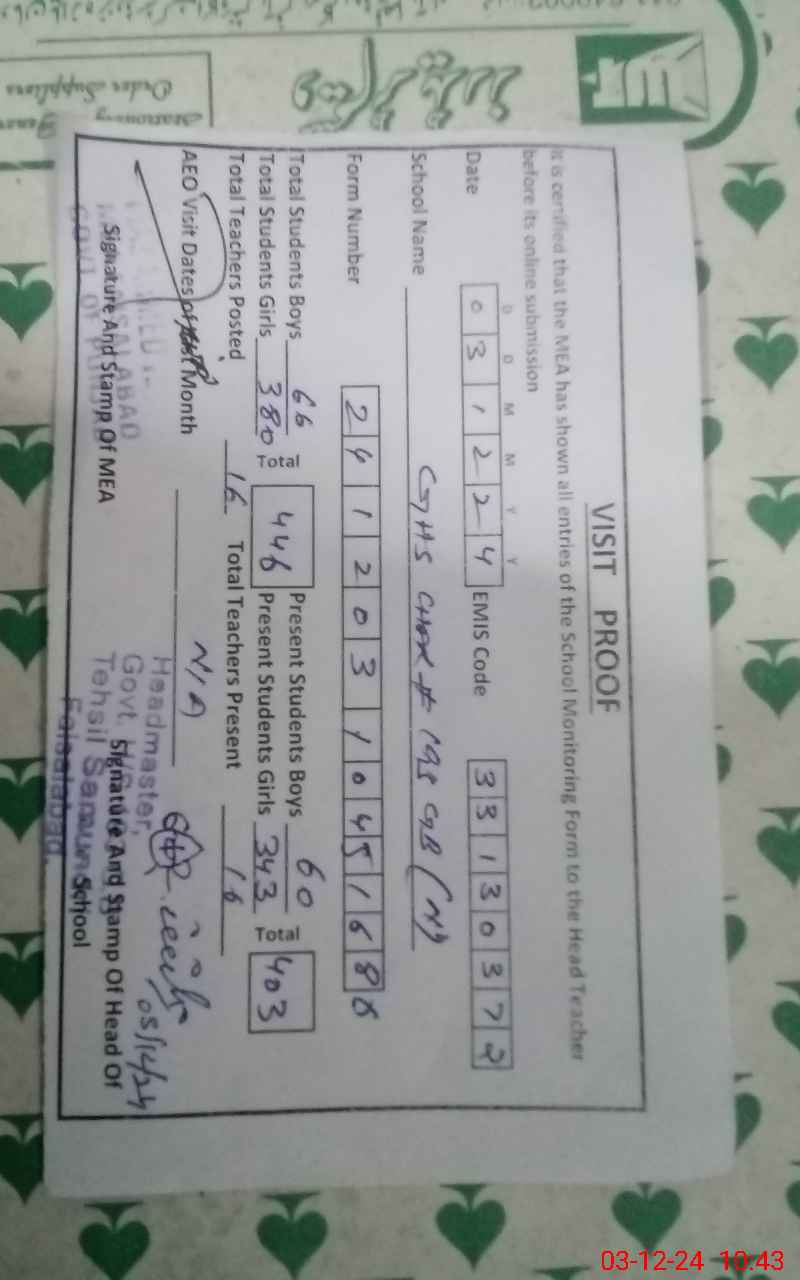 VISIT PROOF
It is certified that the MEA has shown all entries of the School Monitoring Form to the Head Teacher
before its online submission
D D M M Y Y
Date 0 3 1 2 2 4 EMIS Code 3 3 1 3 0 3 7 2
School Name GHS 198 GB (N)
Form Number 2 4 1 2 0 3 1 0 4 5 1 6 8 8
Total Students Boys 66 Present Students Boys 60
Total Students Girls 380 Total 446 Present Students Girls 343 Total 403
Total Teachers Posted 16 Total Teachers Present 16
AEO Visit Dates of Month N/A
Signature And Stamp Of MEA
Signature And Stamp Of Head Of
School
Headmaster,
Govt.
Tehsil
Faisalabad.
Order Suppliers
Stationery
03-12-24 10:43